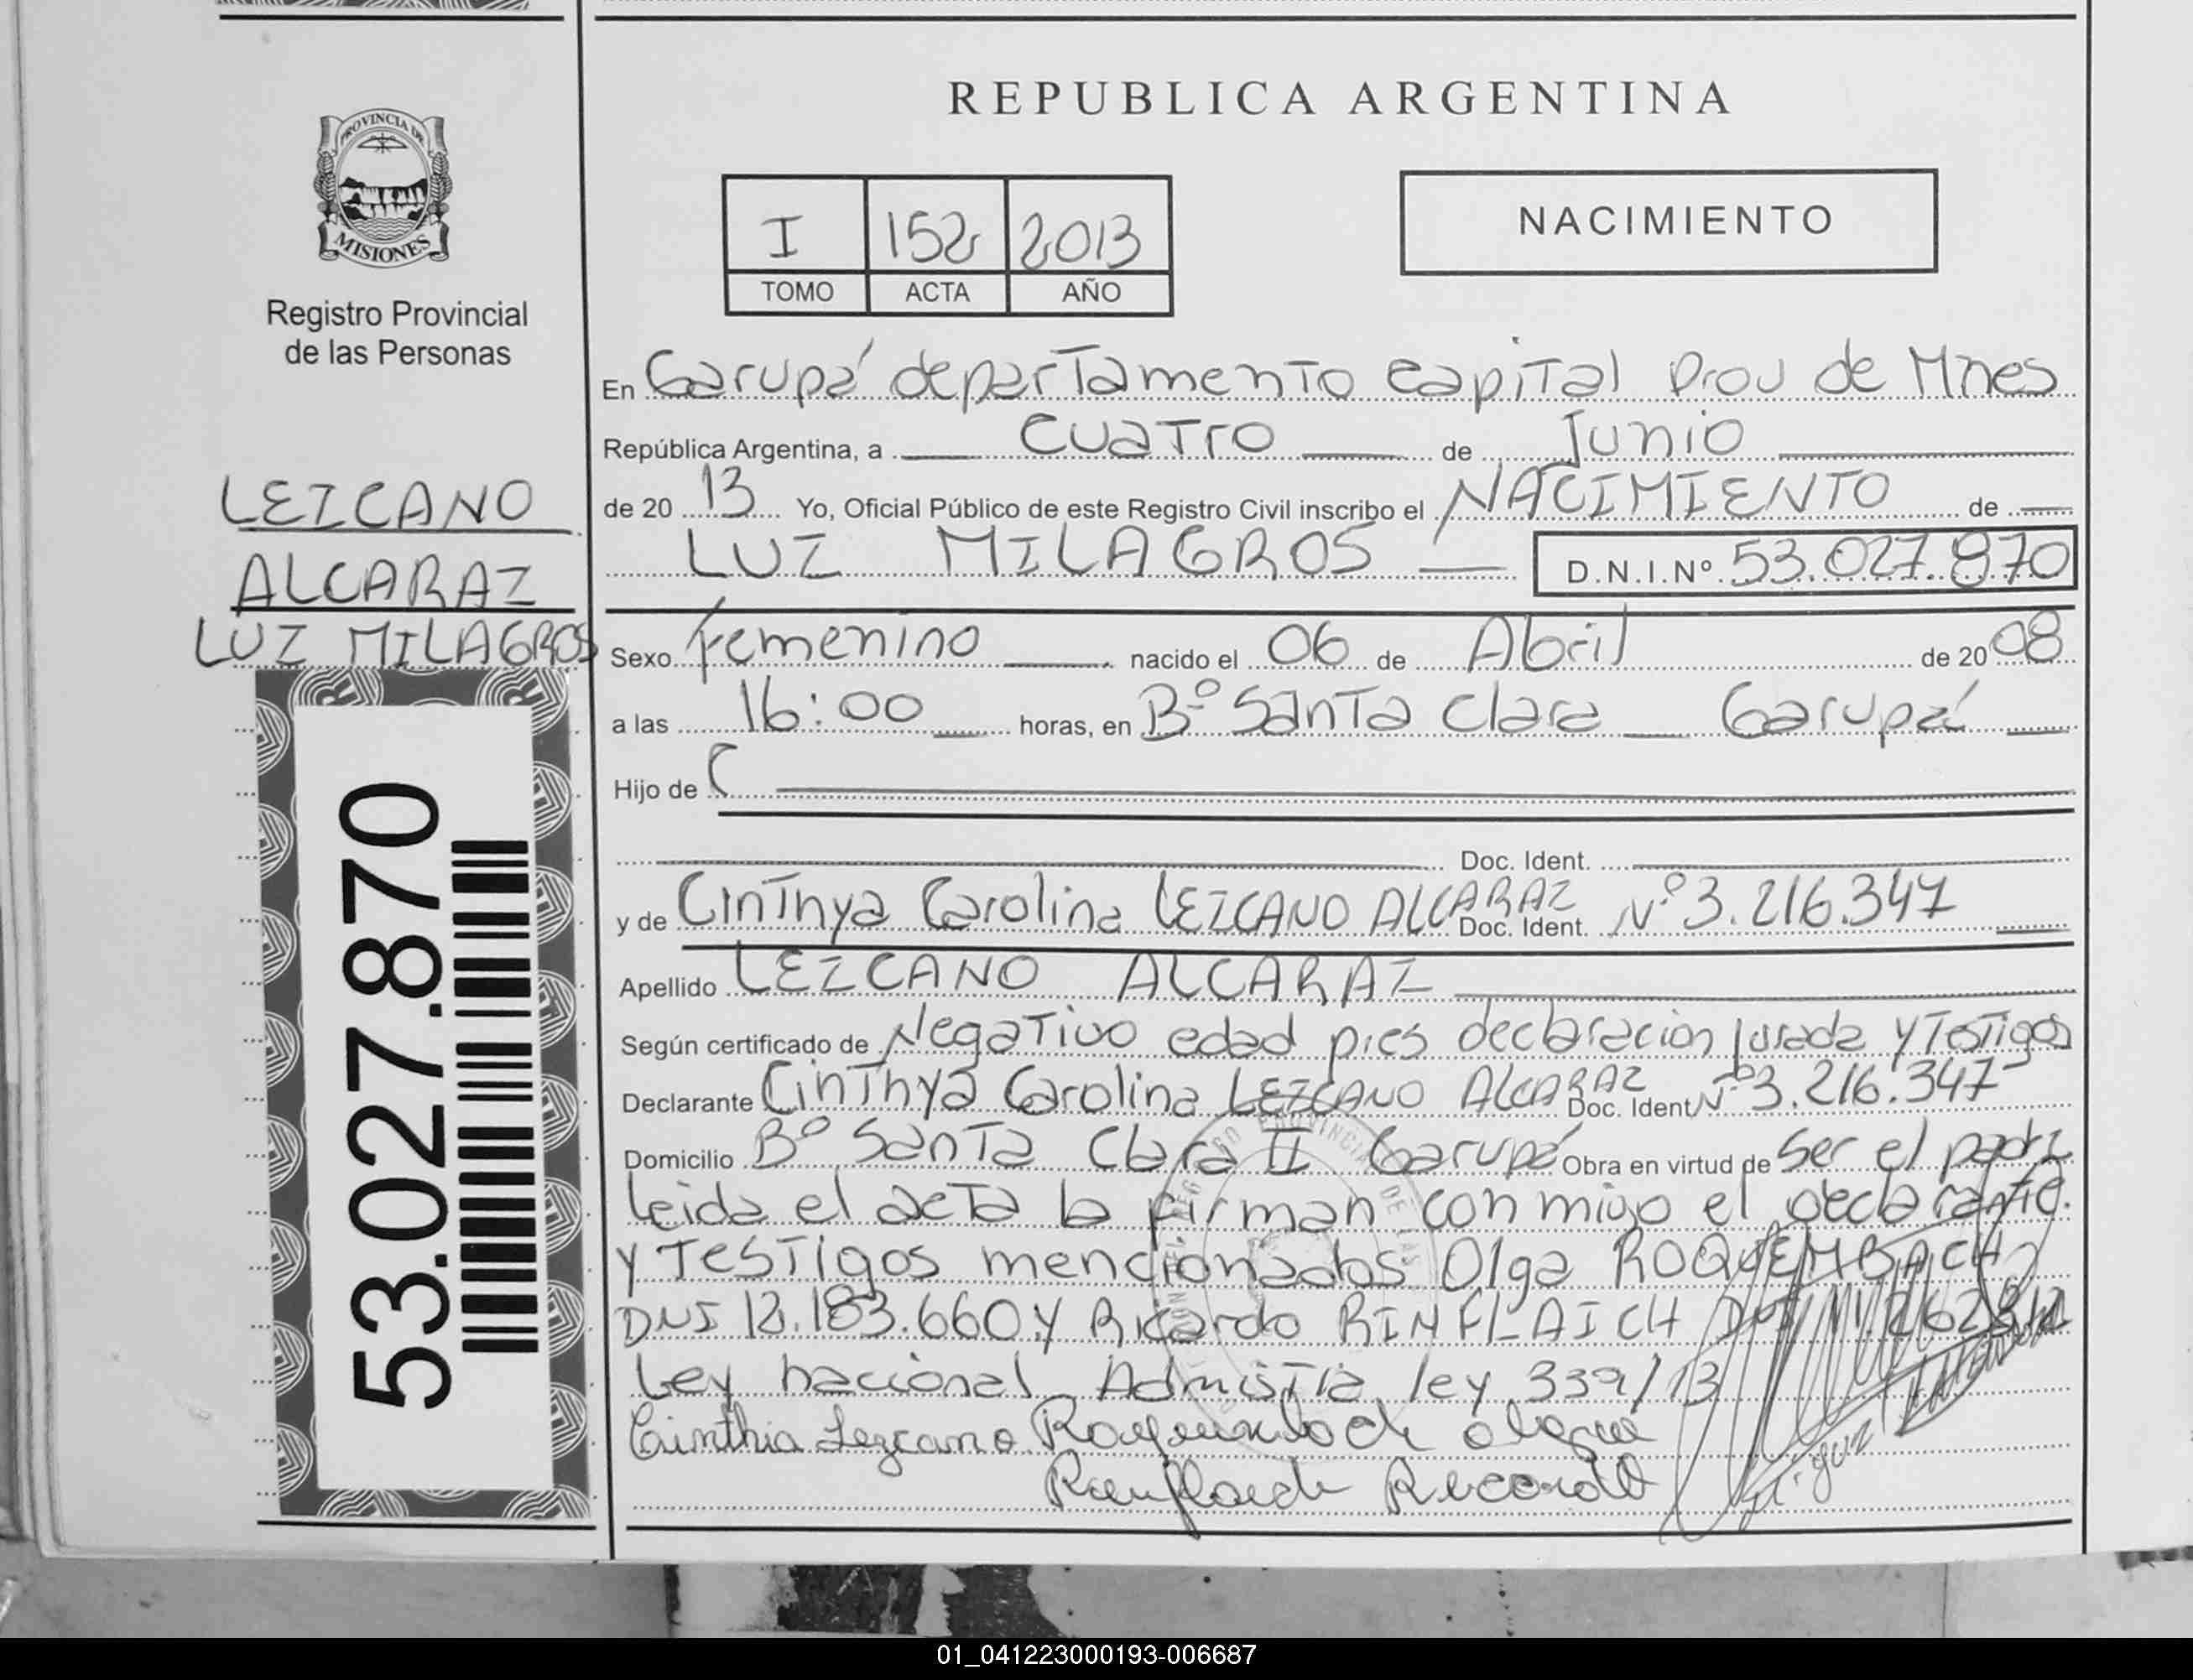 REPUBLICA ARGENTINA
PROVINCIA DE
MISIONES
Registro Provincial
de las Personas
LEZCANO
ALCARAZ
LUZ MILAGROS
53.027.870
I 152 2013
TOMO ACTA AÑO
NACIMIENTO
En Garupá departamento Capital Prov de Mnes
República Argentina, a cuatro de Junio
de 20 13 Yo, Oficial Público de este Registro Civil inscribo el NACIMIENTO de
LUZ MILAGROS D.N.I.Nº 53.027.870
Sexo femenino nacido el 06 de Abril de 20 08
a las 16:00 horas, en Bº Santa Clara Garupá
Hijo de
Doc. Ident.
y de Cinthya Carolina LEZCANO ALCARAZ Doc. Ident. Nº 3.216.347
Apellido LEZCANO ALCARAZ
Según certificado de Negativo edad pies declaracion jurada y Testigos
Declarante Cinthya Carolina LEZCANO ALCARAZ Doc. Ident Nº 3.216.347
Domicilio Bº Santa Clara II Garupá Obra en virtud de Ser el padre
leida el acta la firman con migo el declarante
y Testigos mencionados Olga ROQUEMBACH
DNI 12.183.660 y Ricardo RINFLAICH DNI
Ley nacional Admistia ley 339/13
Cinthia Lezcano
01_041223000193-006687